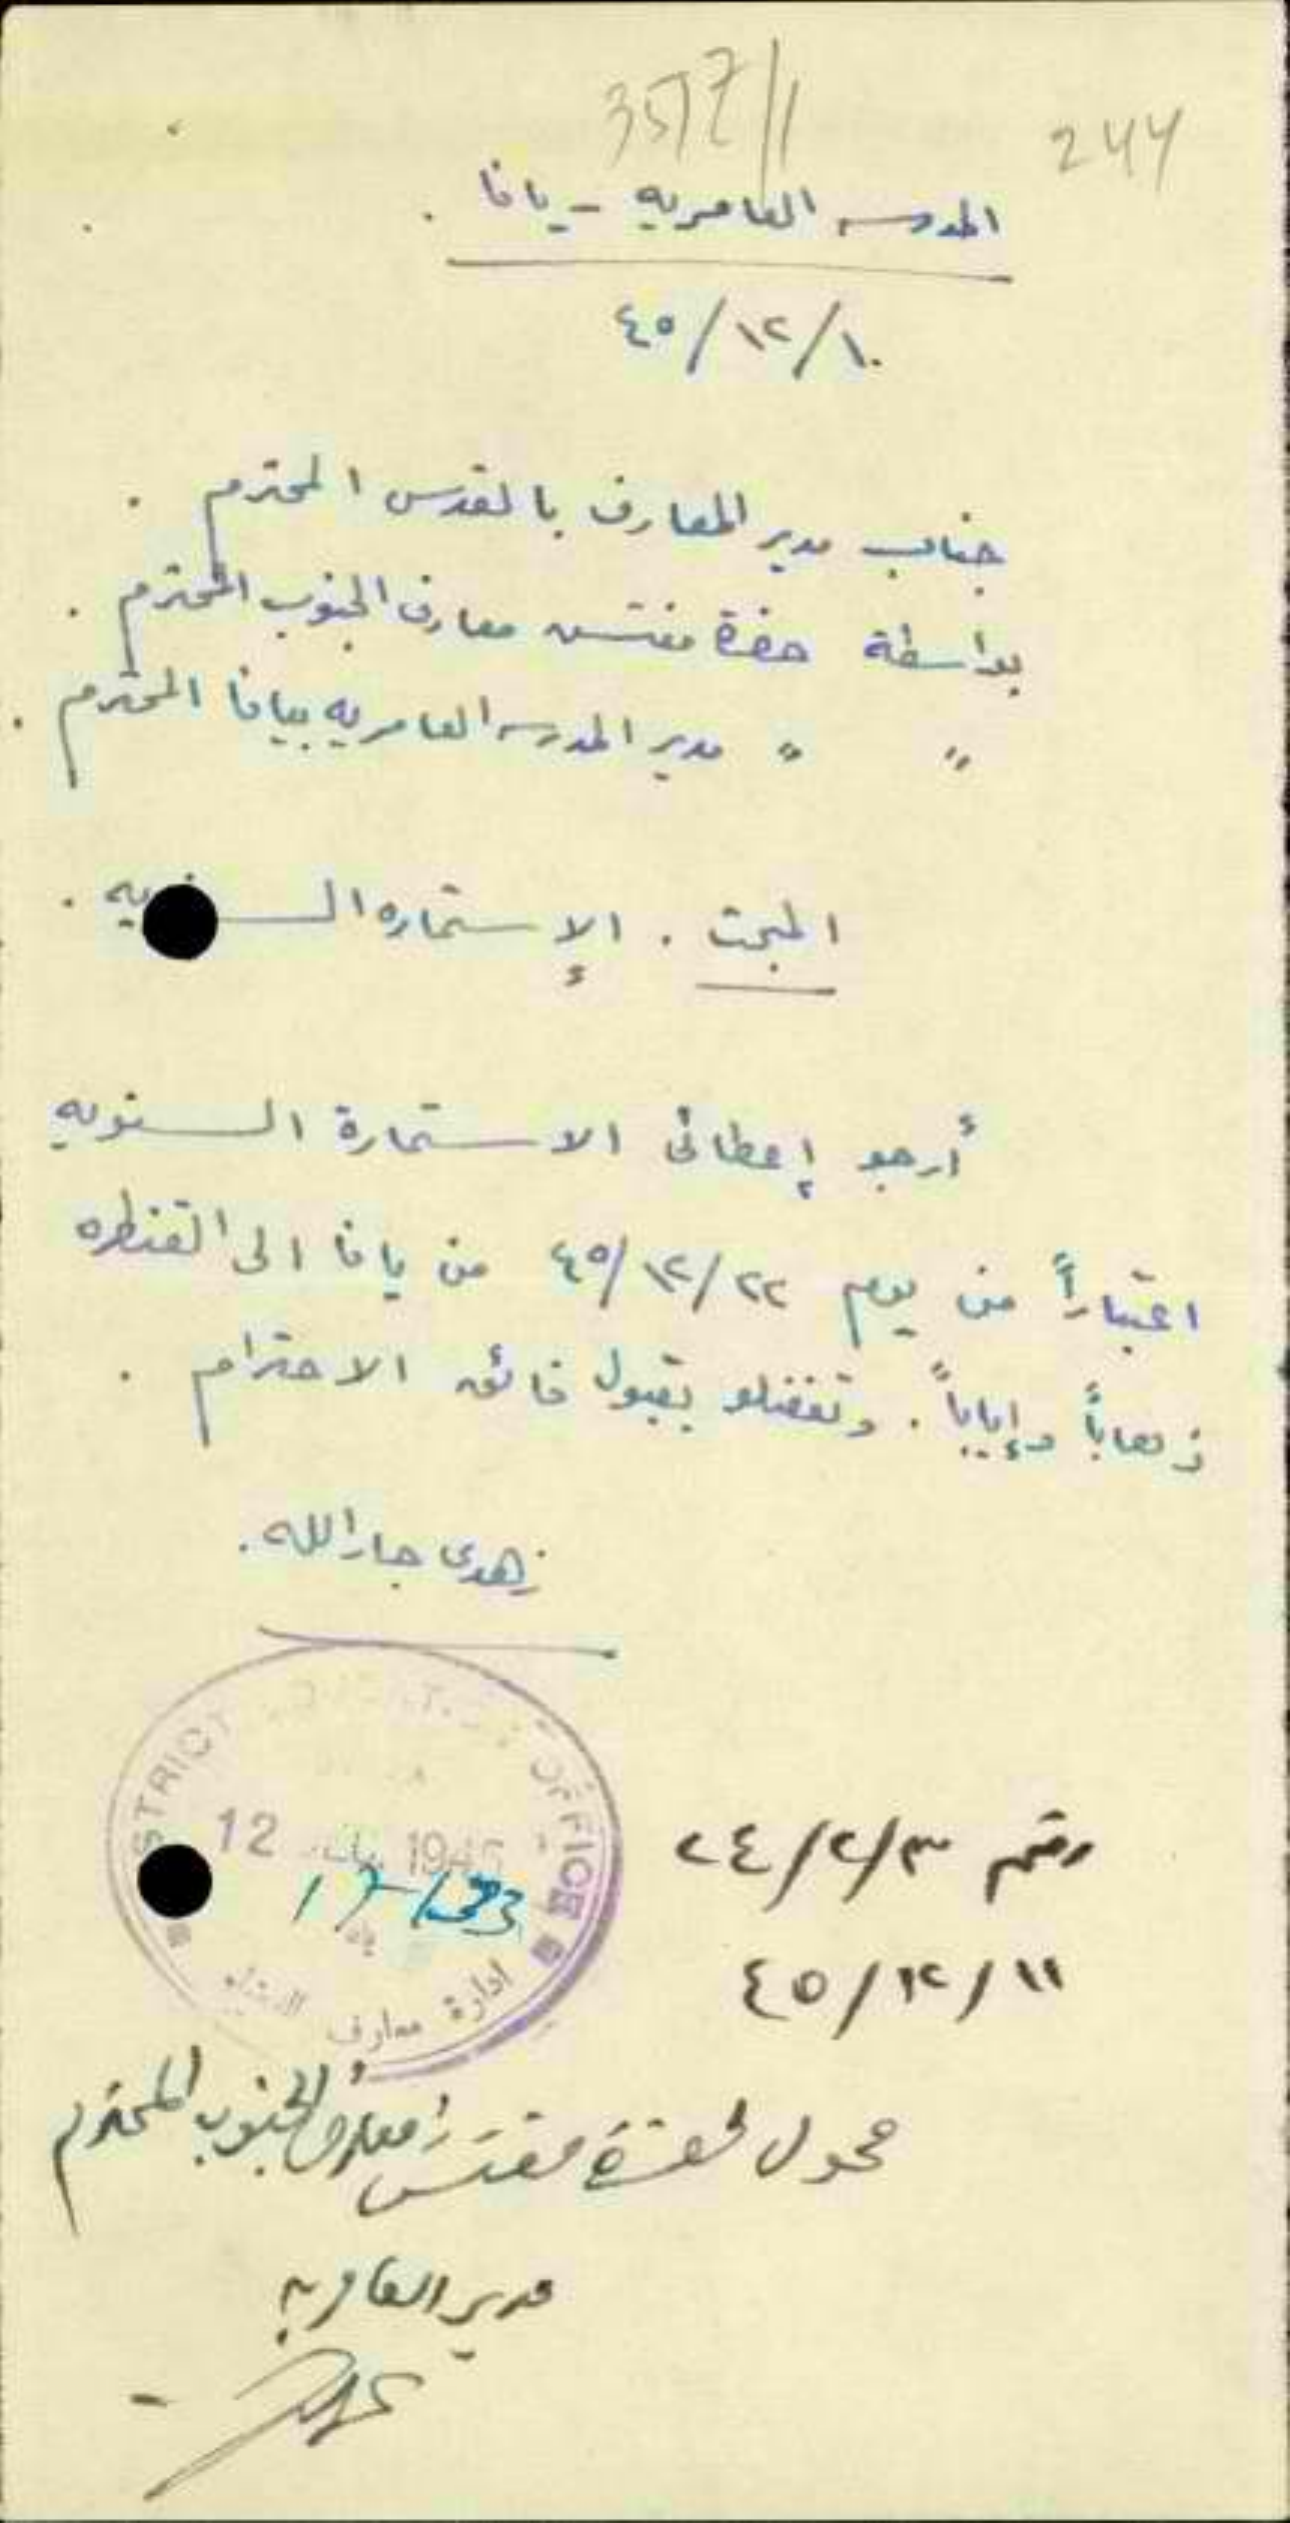 244
المدرسه العامريه - يافا .
٤٥/١٢/١٠
جناب مدير المعارف بالقدس المحترم .
بواسطة حضرة مفتش معارف الجنوب المحترم .
" " مدير المدرسه العامريه بيافا المحترم .
المبحث . الإستماره السنويه .
أرجو إعطائى الاستمارة السنويه
اعتباراً من يوم ٤٥/١٢/٢٢ من يافا الى القنطره
ذهاباً وإياباً . وتفضلو بقبول فائق الاحترام .
زهدى جارالله .
DISTRICT OFFICE
12 1945
ادارة معارف
رقم ٢٤/٢/٣
٤٥/١٢/١١
محول لحضرة مفتش معارف الجنوب المحترم
مدير العامريه